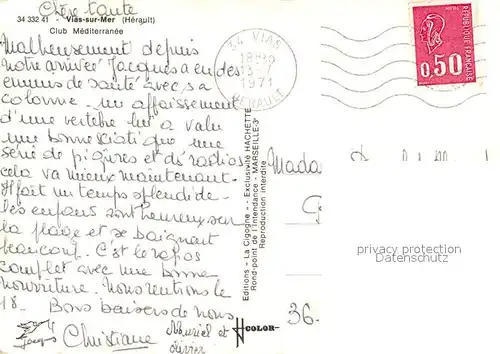 Chère tante
34 332 41 - Vias-sur-Mer (Hérault)
Club Méditerranée
Malheureusement depuis
notre arrivée Jacques a eu des
ennuis de santé avec sa
colonne - un affaissement
d'une vertèbre lui a valu
une bonne sciatique une
série de piqûres et des radios
cela va mieux maintenant.
Il fait un temps splendide -
les enfants sont heureux sur
la plage et se baignent
beaucoup. C'est le repos
complet avec une bonne
nourriture. Nous rentrons le
18. Bons baisers de nous
4
Jacques Christiane Muriel et
Olivier
Editions « La Cigogne » - Exclusivité HACHETTE
Rond-point de l'Intendance - MARSEILLE-3e
Reproduction interdite
COLOR
34 VIAS
18H
1971
HERAULT
0,50
REPUBLIQUE FRANÇAISE
Mada
36.
privacy protection
Datenschutz